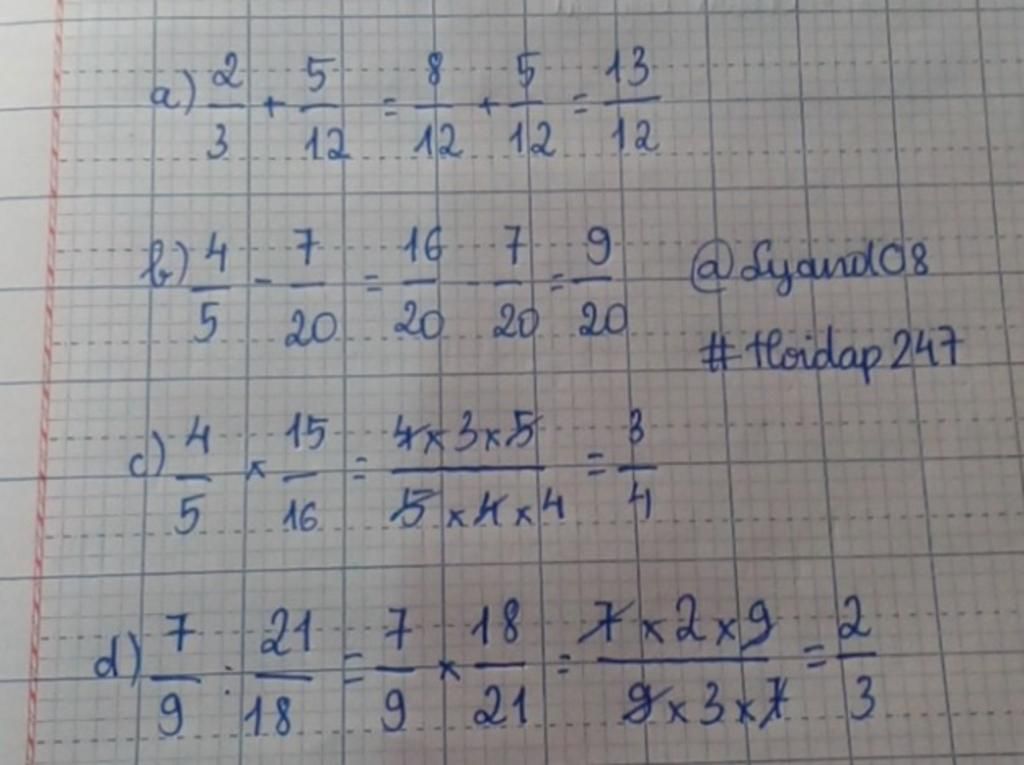 a) 2/3 + 5/12 = 8/12 + 5/12 = 13/12
b) 4/5 - 7/20 = 16/20 - 7/20 = 9/20
@Lyand08
#Hoidap247
c) 4/5 × 15/16 = 4×3×5/5×4×4 = 3/4
d) 7/9 : 21/18 = 7/9 × 18/21 = 7×2×9/9×3×7 = 2/3